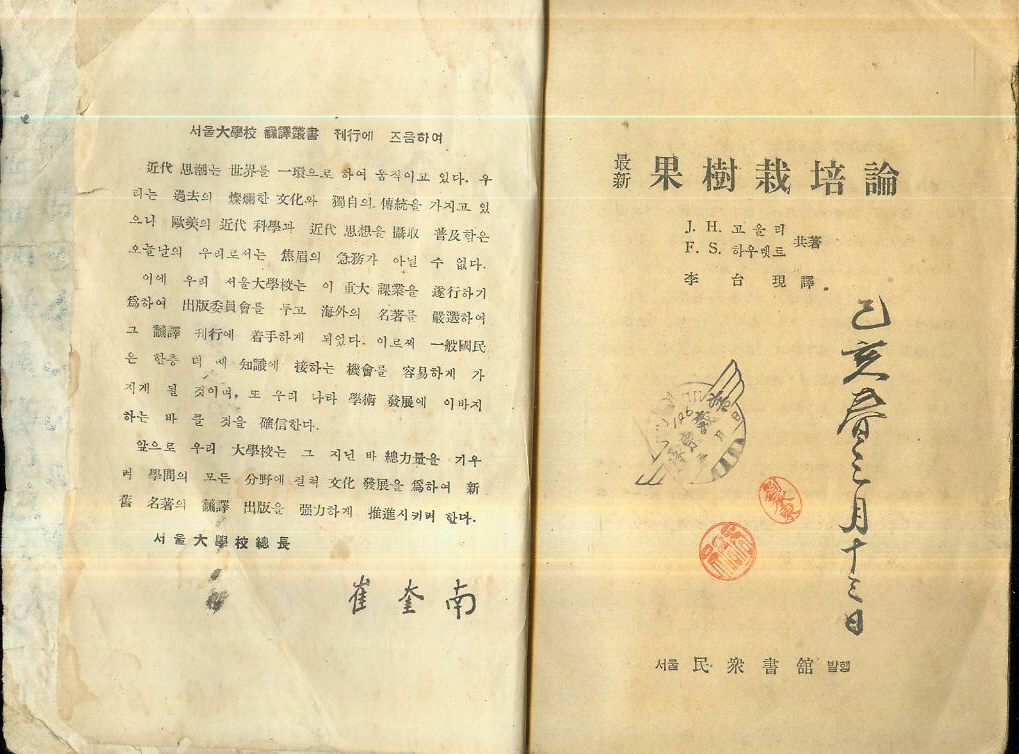 서울大學校 飜譯叢書 刊行에 즈음하여
近代 思潮는 世界를 一環으로 하여 움직이고 있다. 우
리는 過去의 燦爛한 文化와 獨自의 傳統을 가지고 있
으나 歐美의 近代 科學과 近代 思想을 攝取 普及함은
오늘날의 우리로서는 焦眉의 急務가 아닐 수 없다.
이에 우리 서울大學校는 이 重大 課業을 遂行하기
爲하여 出版委員會를 두고 海外의 名著를 嚴選하여
그 飜譯 刊行에 着手하게 되었다. 이로써 一般國民
은 한층 더 새 知識에 接하는 機會를 容易하게 가
지게 될 것이며, 또 우리 나라 學術 發展에 이바지
하는 바 클 것을 確信한다.
앞으로 우리 大學校는 그 지닌 바 總力量을 기우
려 學問의 모든 分野에 걸쳐 文化 發展을 爲하여 新
舊 名著의 飜譯 出版을 强力하게 推進시키려 한다.
서울大學校總長
崔奎南
最新 果樹栽培論
J. H. 고울리
F. S. 하우렛트 共著
李台現 譯
己亥春三月十三日
서울 民衆書館 발행